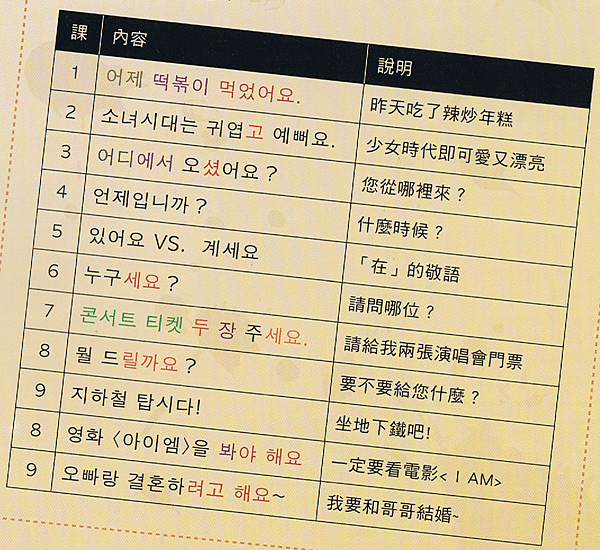 課 內容 說明
1 어제 떡볶이 먹었어요. 昨天吃了辣炒年糕
2 소녀시대는 귀엽고 예뻐요. 少女時代即可愛又漂亮
3 어디에서 오셨어요? 您從哪裡來?
4 언제입니까? 什麼時候?
5 있어요 VS. 계세요 「在」的敬語
6 누구세요? 請問哪位?
7 콘서트 티켓 두 장 주세요. 請給我兩張演唱會門票
8 뭘 드릴까요? 要不要給您什麼?
9 지하철 탑시다! 坐地下鐵吧!
8 영화 〈아이엠〉을 봐야 해요 一定要看電影< I AM>
9 오빠랑 결혼하려고 해요~ 我要和哥哥結婚~